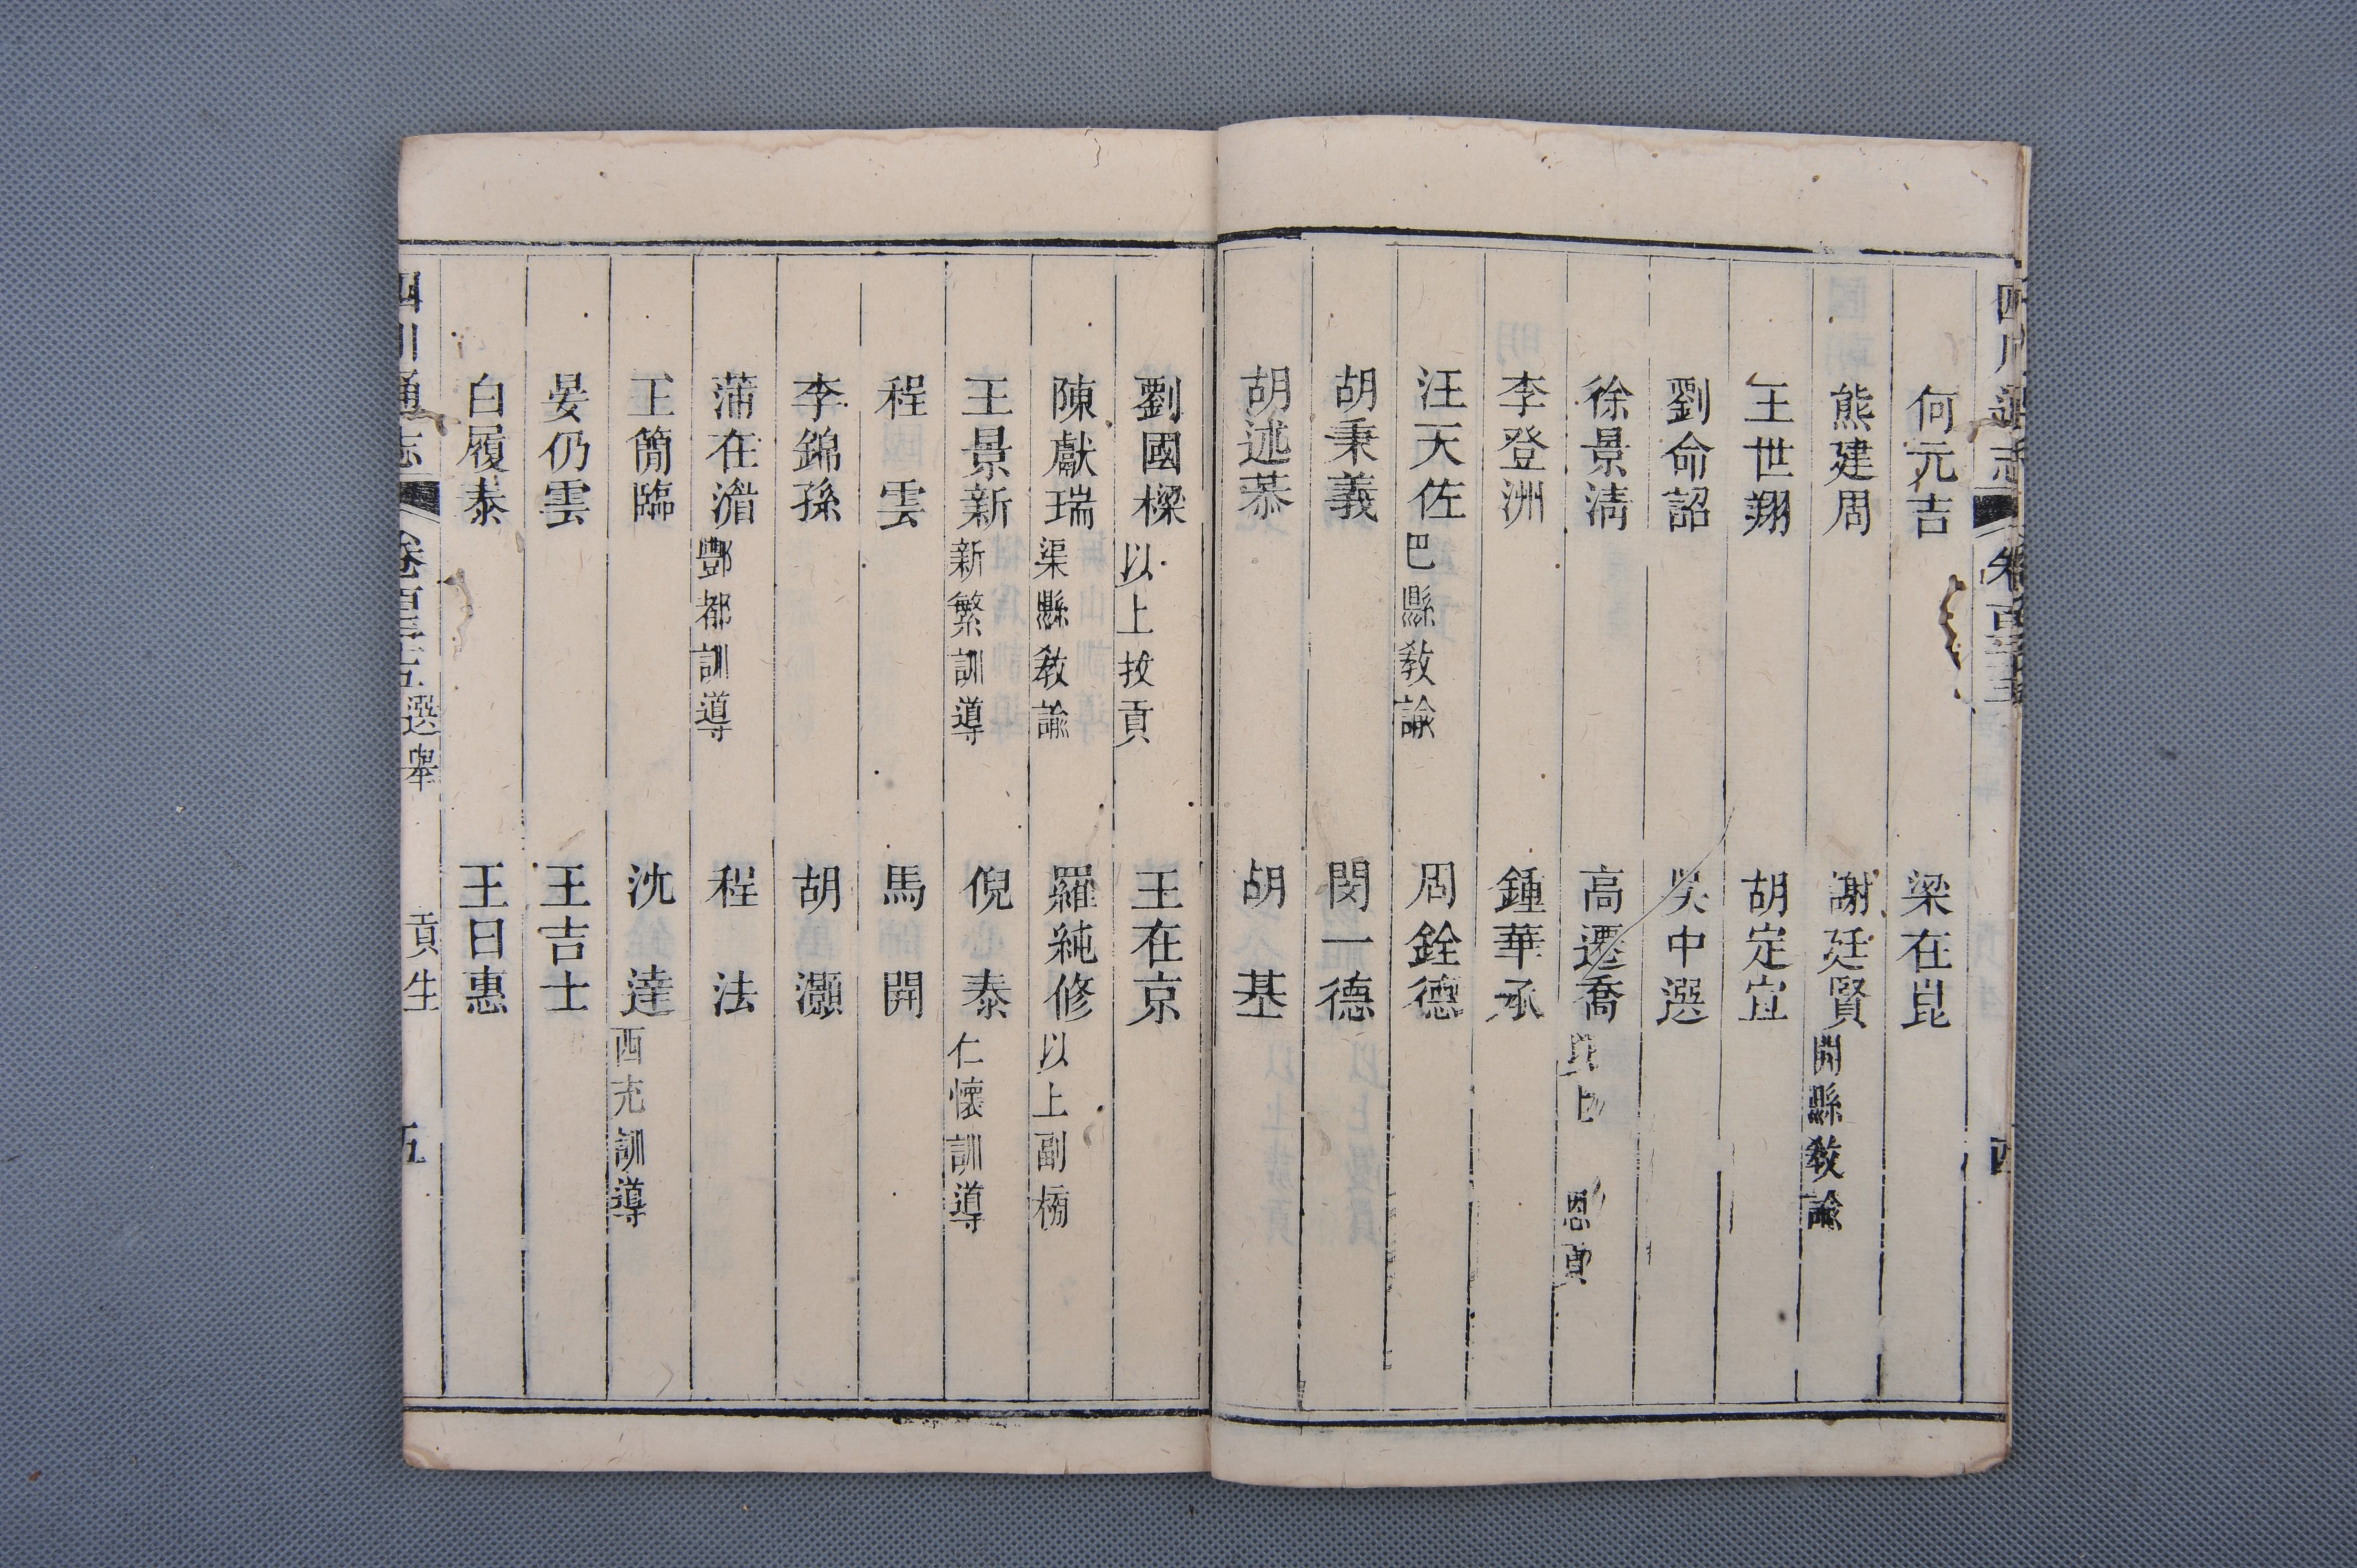 何元吉　梁在崑
熊建周　謝廷賢開縣教諭
王世翔　胡定宜
劉命詔　吳中選
徐景淸　高遷喬以上恩貢
李登洲　鍾華承
汪天佐巴縣教諭　周銓德
胡秉義　閔一德
胡述恭　胡基
劉國樑以上拔貢　王在京
陳獻瑞渠縣教諭　羅純修以上副榜
王景新新繁訓導　倪泰仁懷訓導
程雲　馬開
李錦孫　胡灝
蒲在湽酆都訓導　程法
王簡臨　沈達西充訓導
晏仍雲　王吉士
白履泰　王日惠
四川通志　卷百三十五選舉　貢生　五